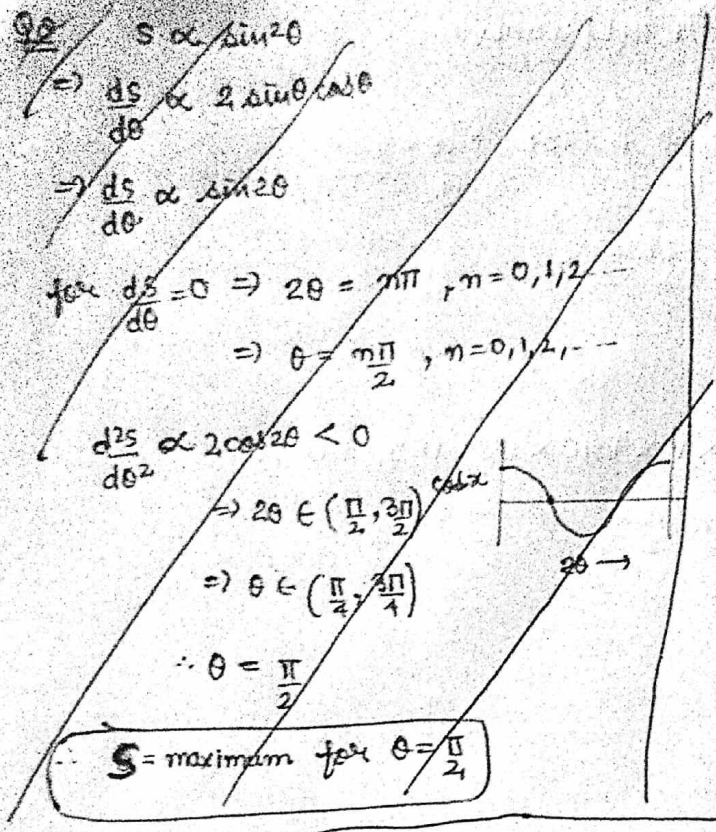 S ∝ sin²θ
⇒ dS/dθ ∝ 2 sinθ cosθ
⇒ dS/dθ ∝ sin2θ
for dS/dθ = 0 ⇒ 2θ = nπ , n = 0, 1, 2 ----
⇒ θ = nπ/2 , n = 0, 1, 2, - ---
d²S/dθ² ∝ 2cos2θ < 0
⇒ 2θ ∈ (π/2, 3π/2)
cosx
2θ →
⇒ θ ∈ (π/4, 3π/4)
∴ θ = π/2
∴ S = maximum for θ = π/2